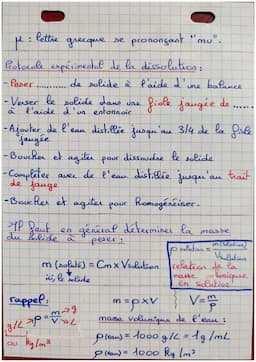 μ : lettre grecque se prononçant "mu".
Protocole expérimental de la dissolution :
- Peser ........... de solide à l'aide d'une balance
- Verser le solide dans une fiole jaugée de ........
à l'aide d'un entonnoir
- Ajouter de l'eau distillée jusqu'au 3/4 de la fiole
jaugée
- Boucher et agiter pour dissoudre le solide
- Compléter avec de l'eau distillée jusqu'au trait
de jauge
- Boucher et agiter pour homogénéiser.
Il faut en général déterminer la masse
du solide à peser :
m (soluté) = Cm x Vsolution
ici, le solide
ρ solution = m(solution)
Vsolution
relation de la
masse volumique
en solution
rappel :
m = ρ x V
V = m/ρ
ρ = m/V
→ g
→ L
g/L
ou kg/m³
masse volumique de l'eau :
ρ(eau) = 1000 g/L = 1 g/mL
ρ(eau) = 1000 kg/m³